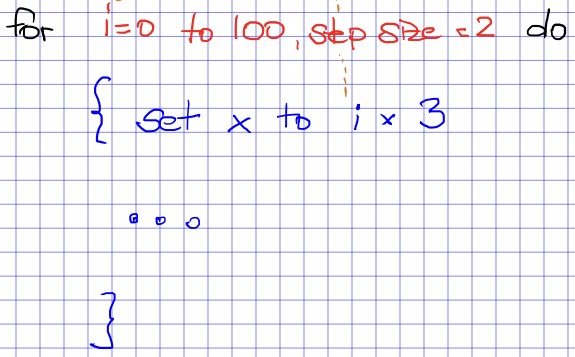 for i=0 to 100, step size = 2 do
{ set x to i × 3
...
}